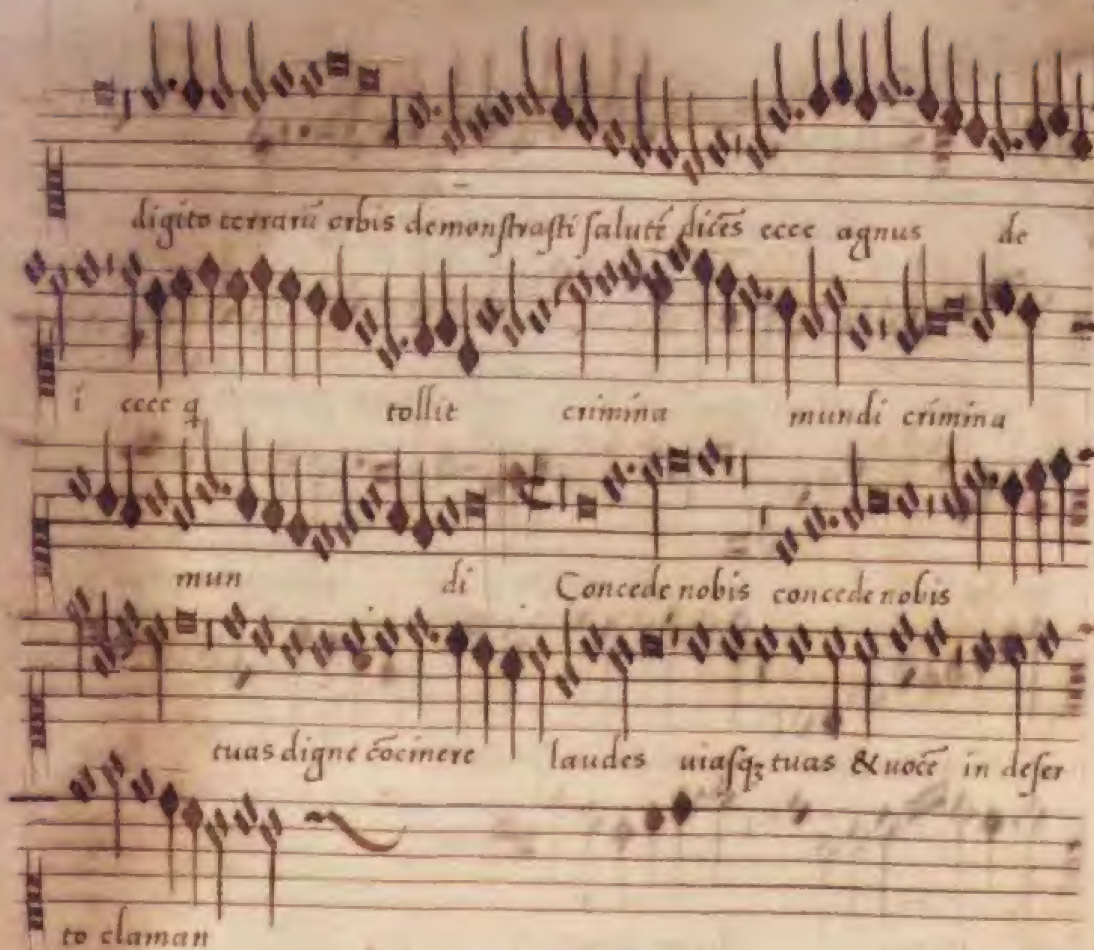 digito terrarū orbis demonstrasti salutē dicēs ecce agnus de
i ecce q tollit crimina mundi crimina
mun di Concede nobis concede nobis
tuas digne cōcinere laudes uiasqꝫ tuas & uocē in deser
to claman